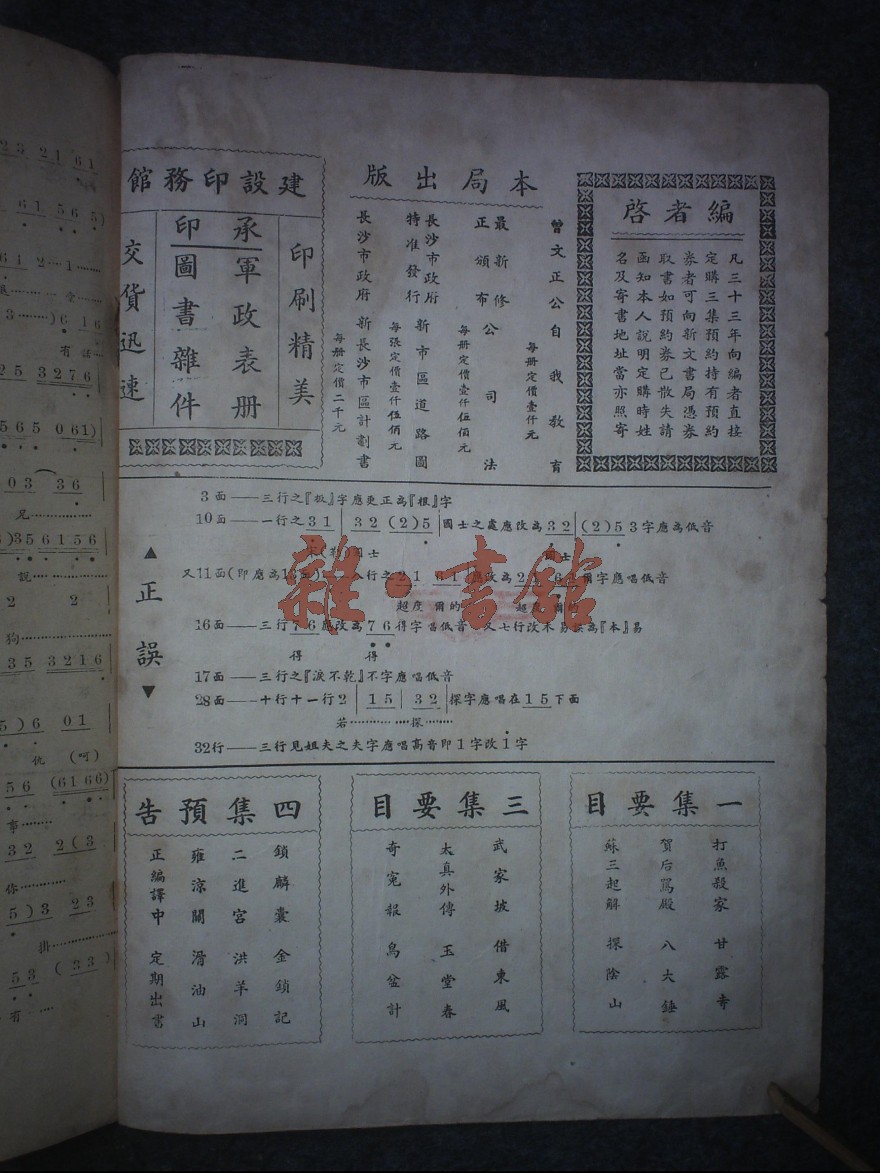 編者啓
凡三十三年向編者直接
定購三集預約持有預約
券者可向新文書局憑券
取書如預約券已散失請
函知本人說明定購時姓
名及寄書地址當亦照寄
本局出版
曾文正公自我教育
每册定價壹仟元
最新修正頒布公司法
每册定價壹仟伍佰元
長沙市政府特准發行新市區道路圖
每張定價壹仟伍佰元
長沙市政府新長沙市區計劃書
每册定價二千元
建設印務館
印刷精美
承印
軍政表册
圖書雜件
交貨迅速
▲正誤▼
3面——三行之『板』字應更正為『根』字
10面——一行之31 32 (2)5國士之處應改為32 (2)5 3字應為低音
國士
又11面(即應為13面)——八行之21 61應改為21 61爾字應唱低音
超度 爾的 超度 爾的
16面——三行76應改為76得字唱低音 又七行改木易應為『本』易
得 得
17面——三行之『淚不乾』不字應唱低音
28面——十行十一行2 15 32探字應唱在15下面
若············探········
32行——三行見姐夫之夫字應唱高音即1字改1字
一集要目
打魚殺家 甘露寺
賀后罵殿 八大錘
蘇三起解 探陰山
三集要目
武家坡 借東風
太真外傳 玉堂春
奇冤報 烏盆計
四集預告
鎖麟囊 金鎖記
二進宮 洪羊洞
雍涼關 滑油山
正編譯中 定期出書
23 21 61
61 565)
61 2···1········
3······)616
有話
25 3276
565 061)
03 36
見···············
)35 6156
說···········
2 2
狗···············
35 3216
5)6 01
仇 (呵)
56 (6166)
事········
32 2(3
你··········
5)3 23
掛···········
53 (33)
有····
雜·書館